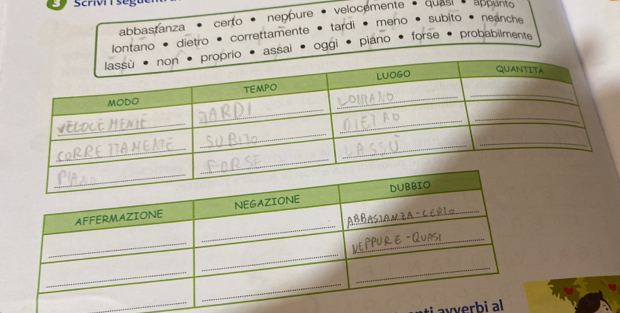 3 Scrivi i segu
abbastanza • certo • neppure • velocemente • quasi • appunto
lontano • dietro • correttamente • tardi • meno • subito • neanche
lassù • non • proprio • assai • oggi • piano • forse • probabilmente
MODO TEMPO LUOGO QUANTITÀ
VELOCEMENTE TARDI LONTANO
CORRETTAMENTE SUBITO DIETRO
PIANO FORSE LASSÙ
AFFERMAZIONE NEGAZIONE DUBBIO
ABBASTANZA - CERTO
NEPPURE - QUASI
nti avverbi al